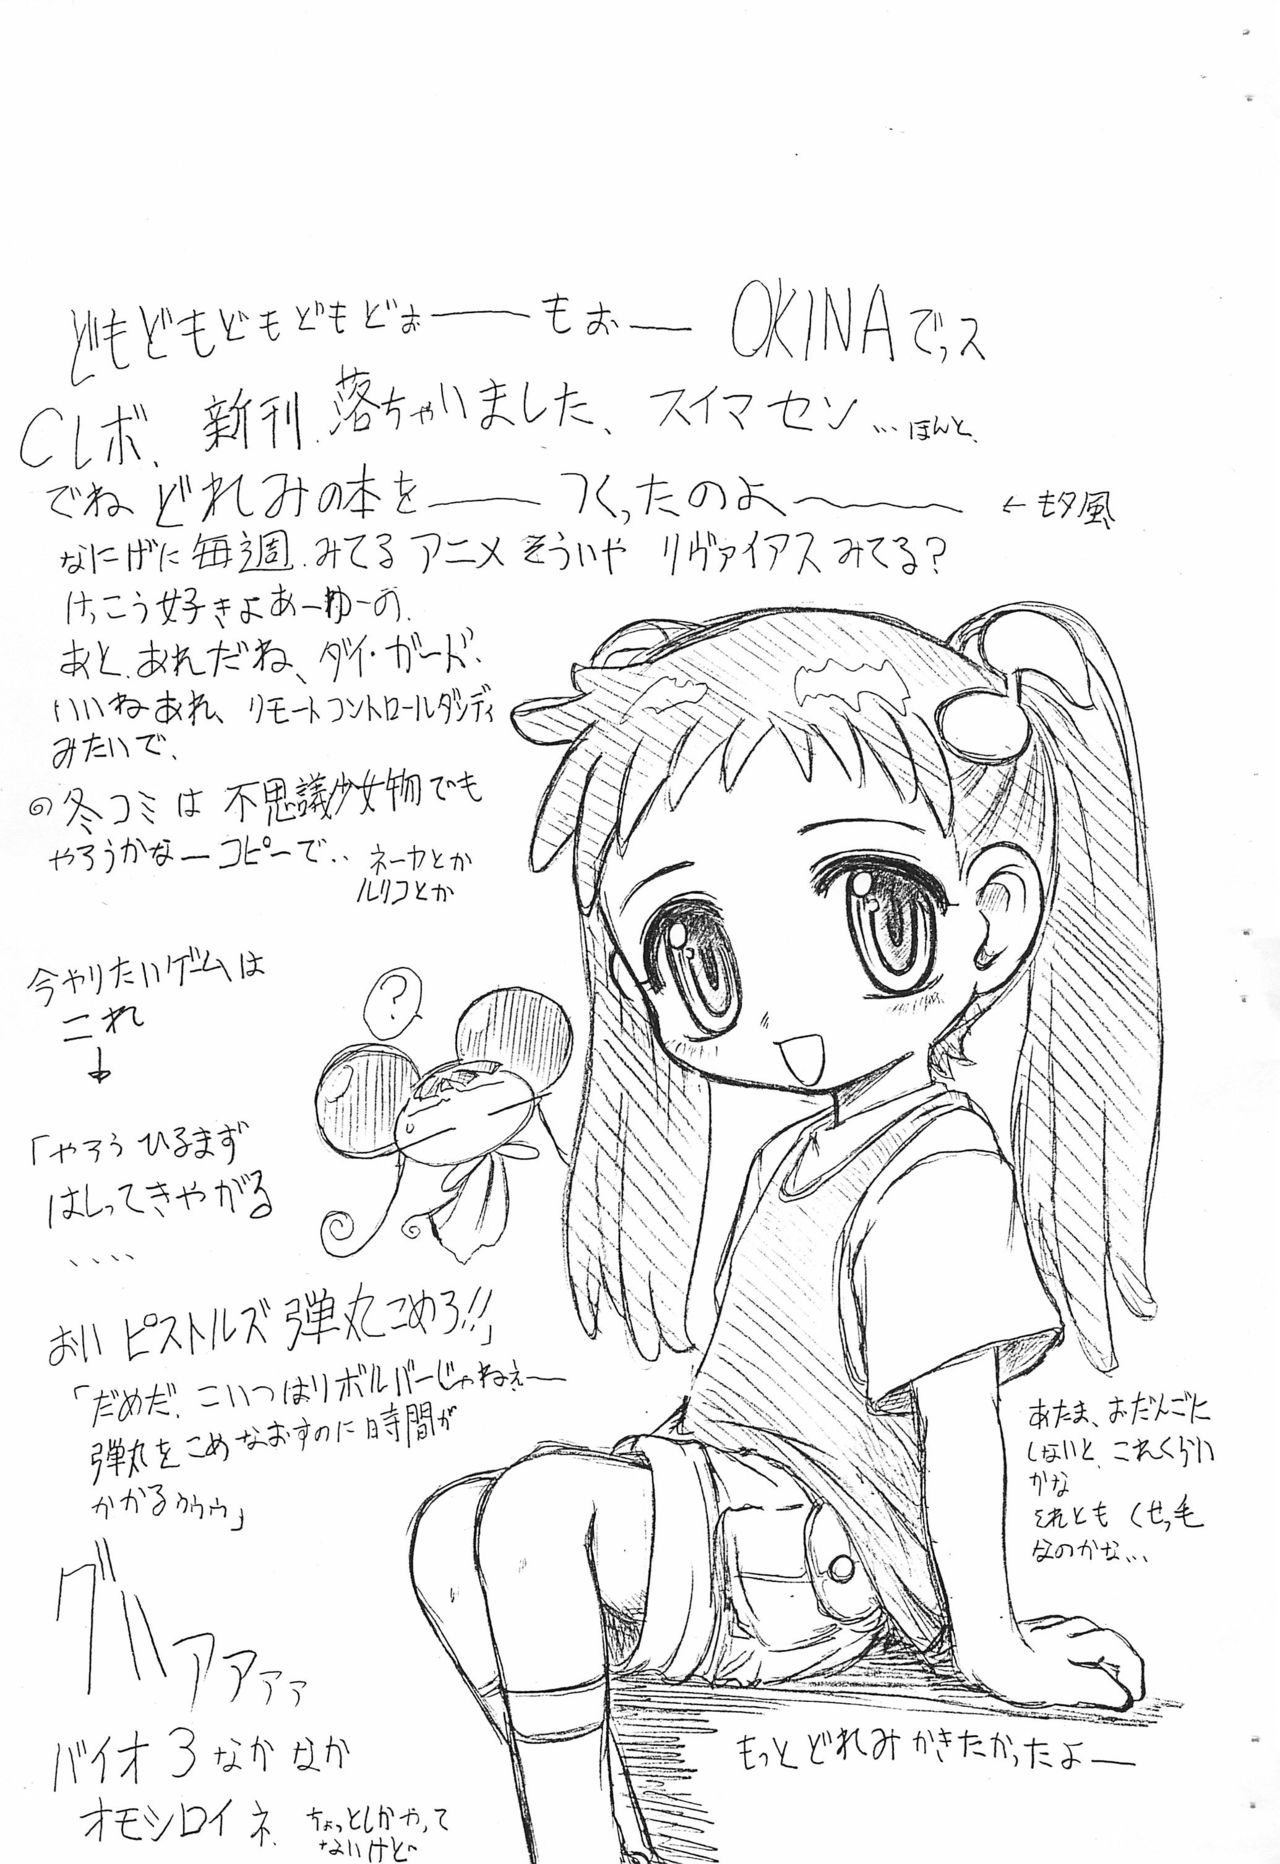 どもどもどもどもどぉ――もぉ― OKINAでっス
CLボ、新刊.落ちゃいました、スイマセン…ほんと、
でね どれみの本を―― つくったのよ～――― ←もタ風
なにげに毎週.みてるアニメ そういや リヴァイアスみてる?
けっこう好きよあーゆーの.
あと、あれだね、ダイ・ガード.
いいねあれ、リモートコントロールダンディ
みたいで、
冬コミは 不思議少女物でも
やろうかなーコピーで..
ネーカとか
ルリコとか
今やりたいゲームは
これ
↓
?
「やろう ひるまず
はしってきやがる
....
おい ピストルズ 弾丸こめろ!!」
「だめだ、こいつはリボルバーじゃねぇ―
弾丸をこめなおすのに時間が
かかるゥゥゥ」
グハァアァァ
バイオ3なかなか
オモシロイネ.
ちょっとしかやって
ないけど
あたま、おだんごに
しないと、これくらい
かな
それとも くせっ毛
なのかな...
もっとどれみかきたかったよ―